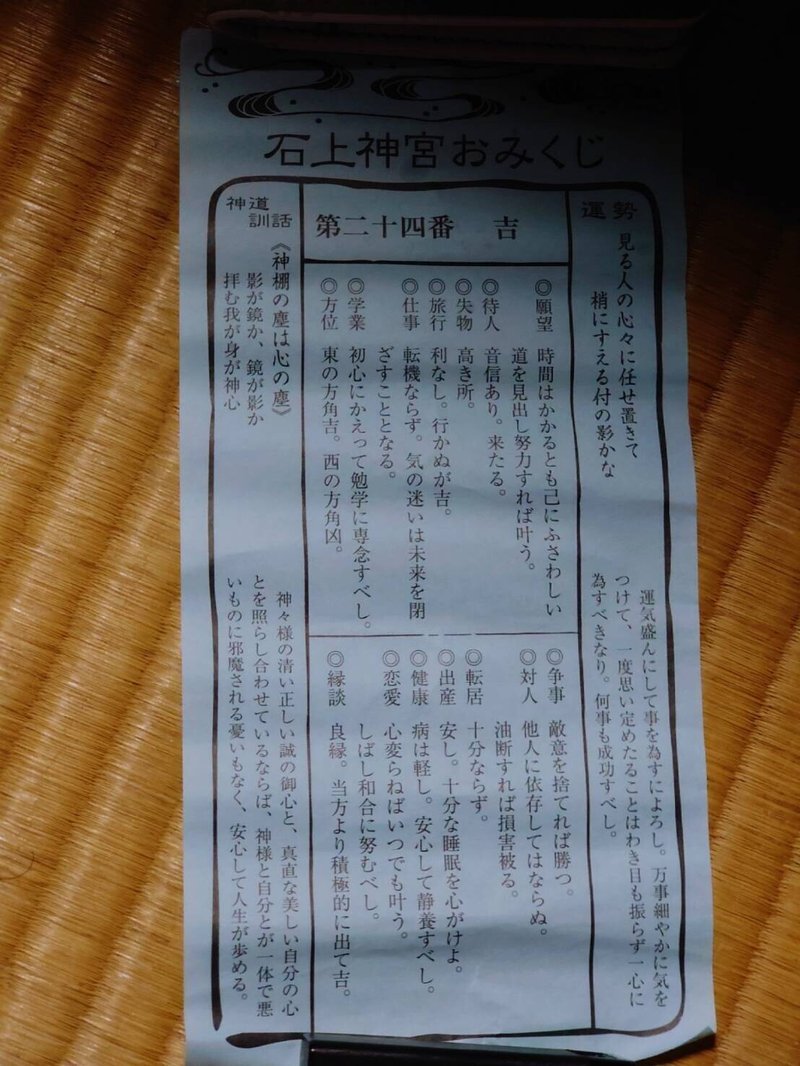 石上神宮おみくじ
運勢
見る人の心々に任せ置きて
梢にすえる付の影かな
運気盛んにして事を為すによろし。万事細やかに気を
つけて、一度思い定めたることはわき目も振らず一心に
為すべきなり。何事も成功すべし。
第二十四番 吉
◎願望 時間はかかるとも己にふさわしい
道を見出し努力すれば叶う。
◎待人 音信あり。来たる。
◎失物 高き所。
◎旅行 利なし。行かぬが吉。
◎仕事 転機ならず。気の迷いは未来を閉
ざすこととなる。
◎学業 初心にかえって勉学に専念すべし。
◎方位 東の方角吉。西の方角凶。
◎争事 敵意を捨てれば勝つ。
◎対人 他人に依存してはならぬ。
油断すれば損害被る。
◎転居 十分ならず。
◎出産 安し。十分な睡眠を心がけよ。
◎健康 病は軽し。安心して静養すべし。
◎恋愛 心変らねばいつでも叶う。
しばし和合に努むべし。
◎縁談 良縁。当方より積極的に出て吉。
神道
訓話
《神棚の塵は心の塵》
影が鏡か、鏡が影か
拝む我が身が神心
神々様の清い正しい誠の御心と、真直な美しい自分の心
とを照らし合わせているならば、神様と自分とが一体で悪
いものに邪魔される憂いもなく、安心して人生が歩める。